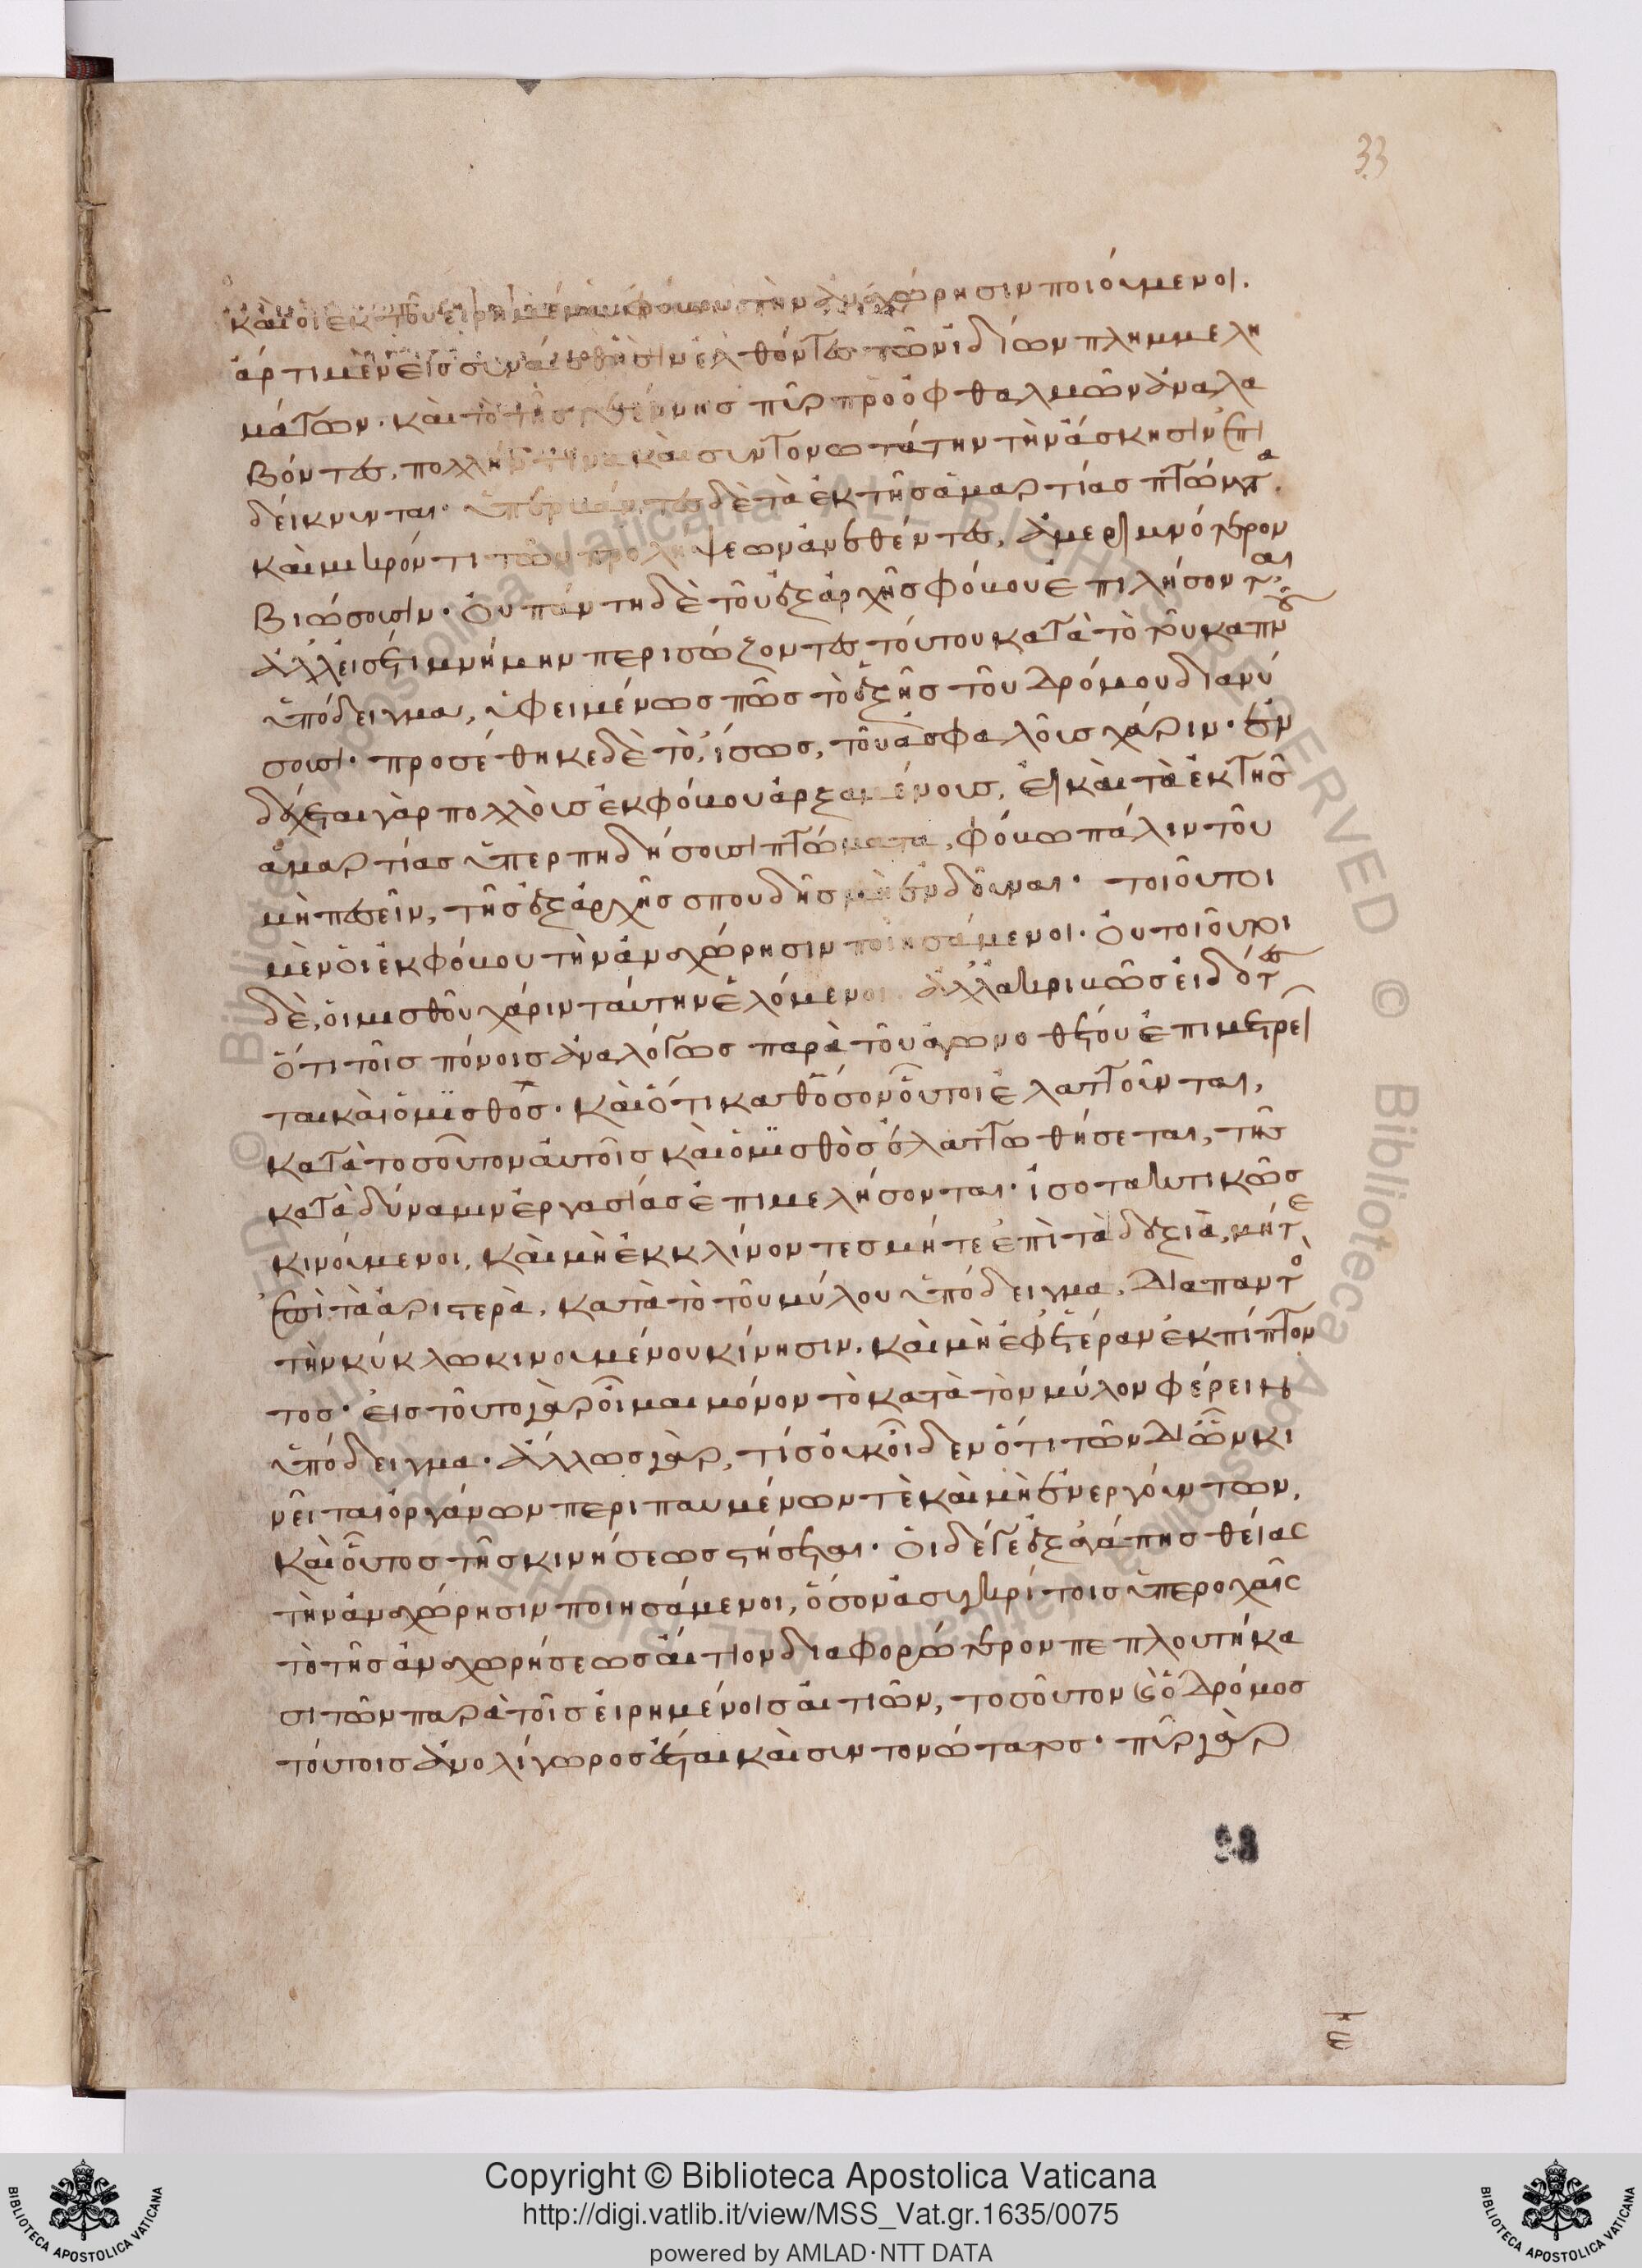 33
καὶ οἱ ἐκ τοῦ εἰρημένου φόβου τὴν ἀναχώρησιν ποιούμενοι.
ἄρτι μὲν εἰς συναίσθησιν ἐλθόντες τῶν ἰδίων πλημμελη
μάτων. καὶ τὸ τῆς γεέννης πῦρ πρὸ ὀφθαλμῶν ἀναλα
βόντες, πολλήν τινα καὶ συντονωτάτην τὴν ἄσκησιν ἐπι
δείκνυνται· δὲ τὰ ἐκ τῆς ἁμαρτίας πτώματα.
καὶ μικρόν τι τῶν προλήψεων ἀνεθέντες, ἀμεριμνότερον
βιώσουσιν. οὐ πάντη δὲ τοῦ ἐξ ἀρχῆς φόβου ἐπιλήσονται,
ἀλλ' εἰς ἔτι μνήμην περισώζοντες τούτου κατὰ τὸ τοῦ καπνοῦ
ὑπόδειγμα, ὑφειμένως πῶς τὸ ἑξῆς τοῦ δρόμου διανύ
σουσι· προσέθηκε δὲ τὸ, ἴσως, τοῦ ἀσφαλοῦς χάριν· ἐν
δέχεται γὰρ πολλοῖς ἐκ φόβου ἀρξαμένοις, εἰ καὶ τὰ ἐκ τῆς
ἁμαρτίας ὑπερπηδήσουσι πτώματα, φόβω πάλιν τοῦ
μὴ πεσεῖν, τῆς ἐξ ἀρχῆς σπουδῆς μὴ ἐνδοῦναι. τοιοῦτοι
μὲν οἱ ἐκ φόβου τὴν ἀναχώρησιν ποιησάμενοι. οὐ τοιοῦτοι
δὲ, οἱ μισθοῦ χάριν ταύτην ἑλόμενοι. ἀλλ' ἀκριβῶς εἰδότες
ὅτι τοῖς πόνοις ἀναλόγως παρὰ τοῦ ἀγωνοθέτου ἐπιμετρεῖ
ται καὶ ὁ μισθός. καὶ ὅτι καθ' ὅσον οὗτοι ἐλαττοῦνται,
κατὰ τοσοῦτον αὐτοῖς καὶ ὁ μισθὸς ἐλαττωθήσεται, τῆς
κατὰ δύναμιν ἐργασίας ἐπιμελήσονται. ἰσοταλαντικῶς
κινούμενοι, καὶ μὴ ἐκκλίνοντες μήτε ἐπὶ τὰ δεξιὰ, μήτε
ἐπὶ τὰ ἀριστερὰ, κατὰ τὸ τοῦ μύλου ὑπόδειγμα, διαπαντὸς
τὴν κύκλω κινουμένου κίνησιν. καὶ μὴ ἐφ' ἑτέραν ἐκπίπτον
τος. εἰς τοῦτο γὰρ οἶμαι μόνον τὸ κατὰ τὸν μύλον φέρειν
ὑπόδειγμα. ἄλλως γὰρ, τίς οὐκ οἶδεν ὅτι τῶν δι' ὧν κι
νεῖται ὀργάνων περιπαυμένων τὲ καὶ μὴ ἐνεργούντων,
καὶ οὗτος τῆς κινήσεως στήσεται. οἱ δέ γε ἐξ ἀγάπης θείας
τὴν ἀναχώρησιν ποιησάμενοι, ὅσον ἀσυγκρίτοις ὑπεροχαῖς
τὸ τῆς ἀναχωρήσεως αἴτιον διαφορώτερον πεπλουτήκα
σι τῶν παρὰ τοῖς εἰρημένοις αἰτιῶν, τοσοῦτον καὶ ὁ δρόμος
τούτοις ἀνολίγωρος ἔσται καὶ συντονώτατος. πῦρ γὰρ
Copyright © Biblioteca Apostolica Vaticana
http://digi.vatlib.it/view/MSS_Vat.gr.1635/0075
powered by AMLAD·NTT DATA
BIBLIOTECA APOSTOLICA VATICANA
BIBLIOTECA APOSTOLICA VATICANA